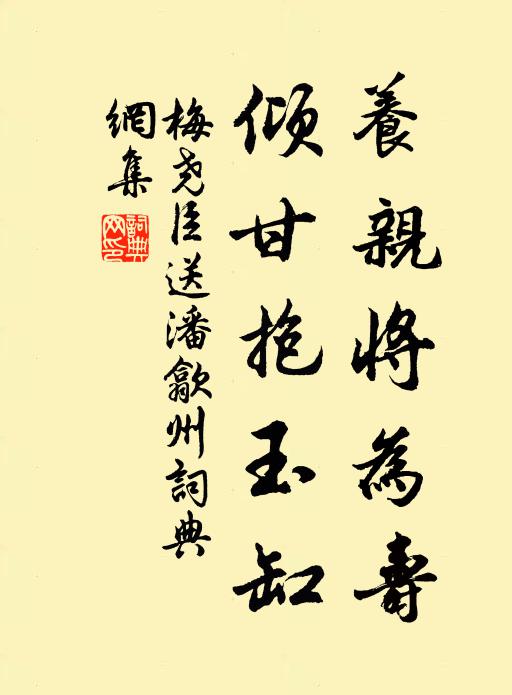 養親將為壽
傾甘抱玉缸
梅尧臣送潘歙州詞典
網集
詞典
网印